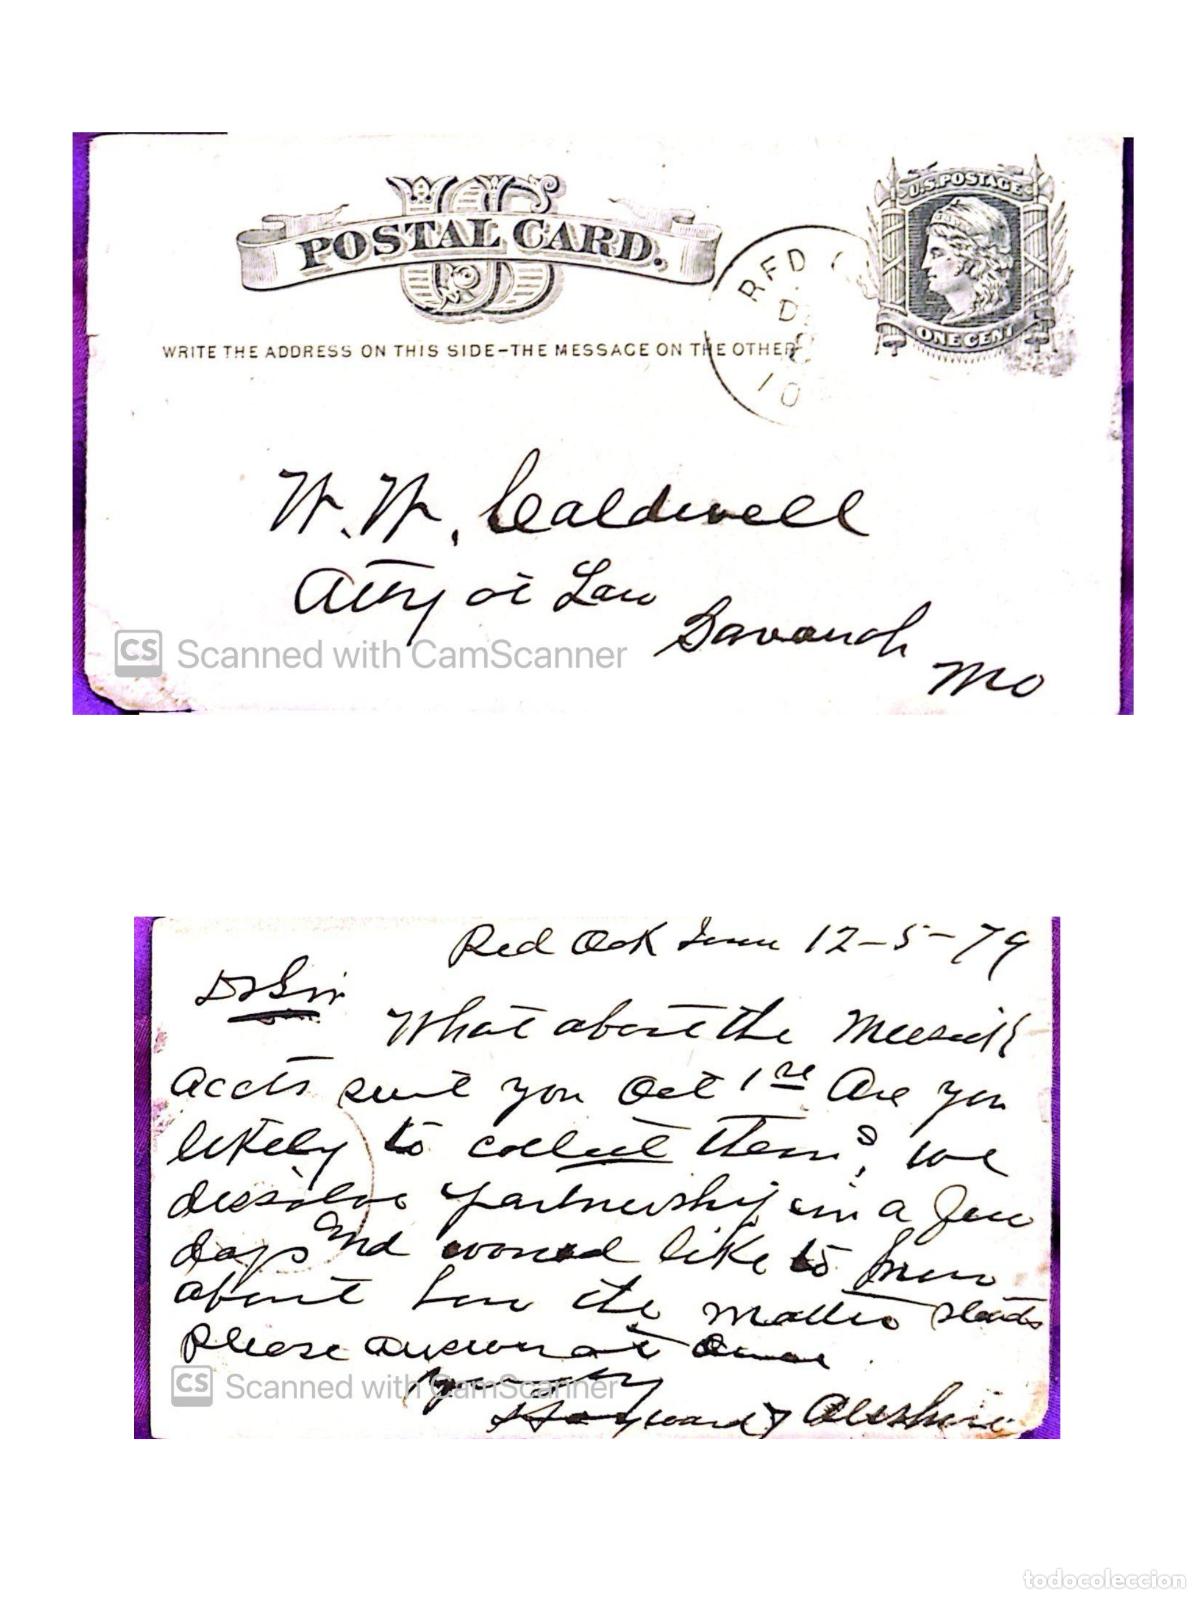 U.S. POSTAGE
US
POSTAL CARD.
RED O
D
10
ONE CENT
WRITE THE ADDRESS ON THIS SIDE-THE MESSAGE ON THE OTHER
W. W. Caldwell
Atty at Law
Savanah
Mo
CS Scanned with CamScanner
Red Oak Iowa 12-5-79
Dr Sir
What about the
accts sent you Oct 1st Are you
likely to collect them? we
dissolve partnership in a few
days and would like to know
about how the matter stands
Please answer at once
CS Scanned with CamScanner
Yours Try
Hayward & Aleshire
todocoleccion